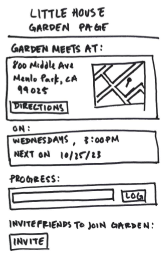 LITTLE HOUSE
GARDEN PAGE
GARDEN MEETS AT:
800 Middle Ave
Menlo Park, CA
99025
DIRECTIONS
ON:
WEDNESDAYS, 3:00PM
NEXT ON 10/25/23
PROGRESS:
LOG
INVITE FRIENDS TO JOIN GARDEN:
INVITE